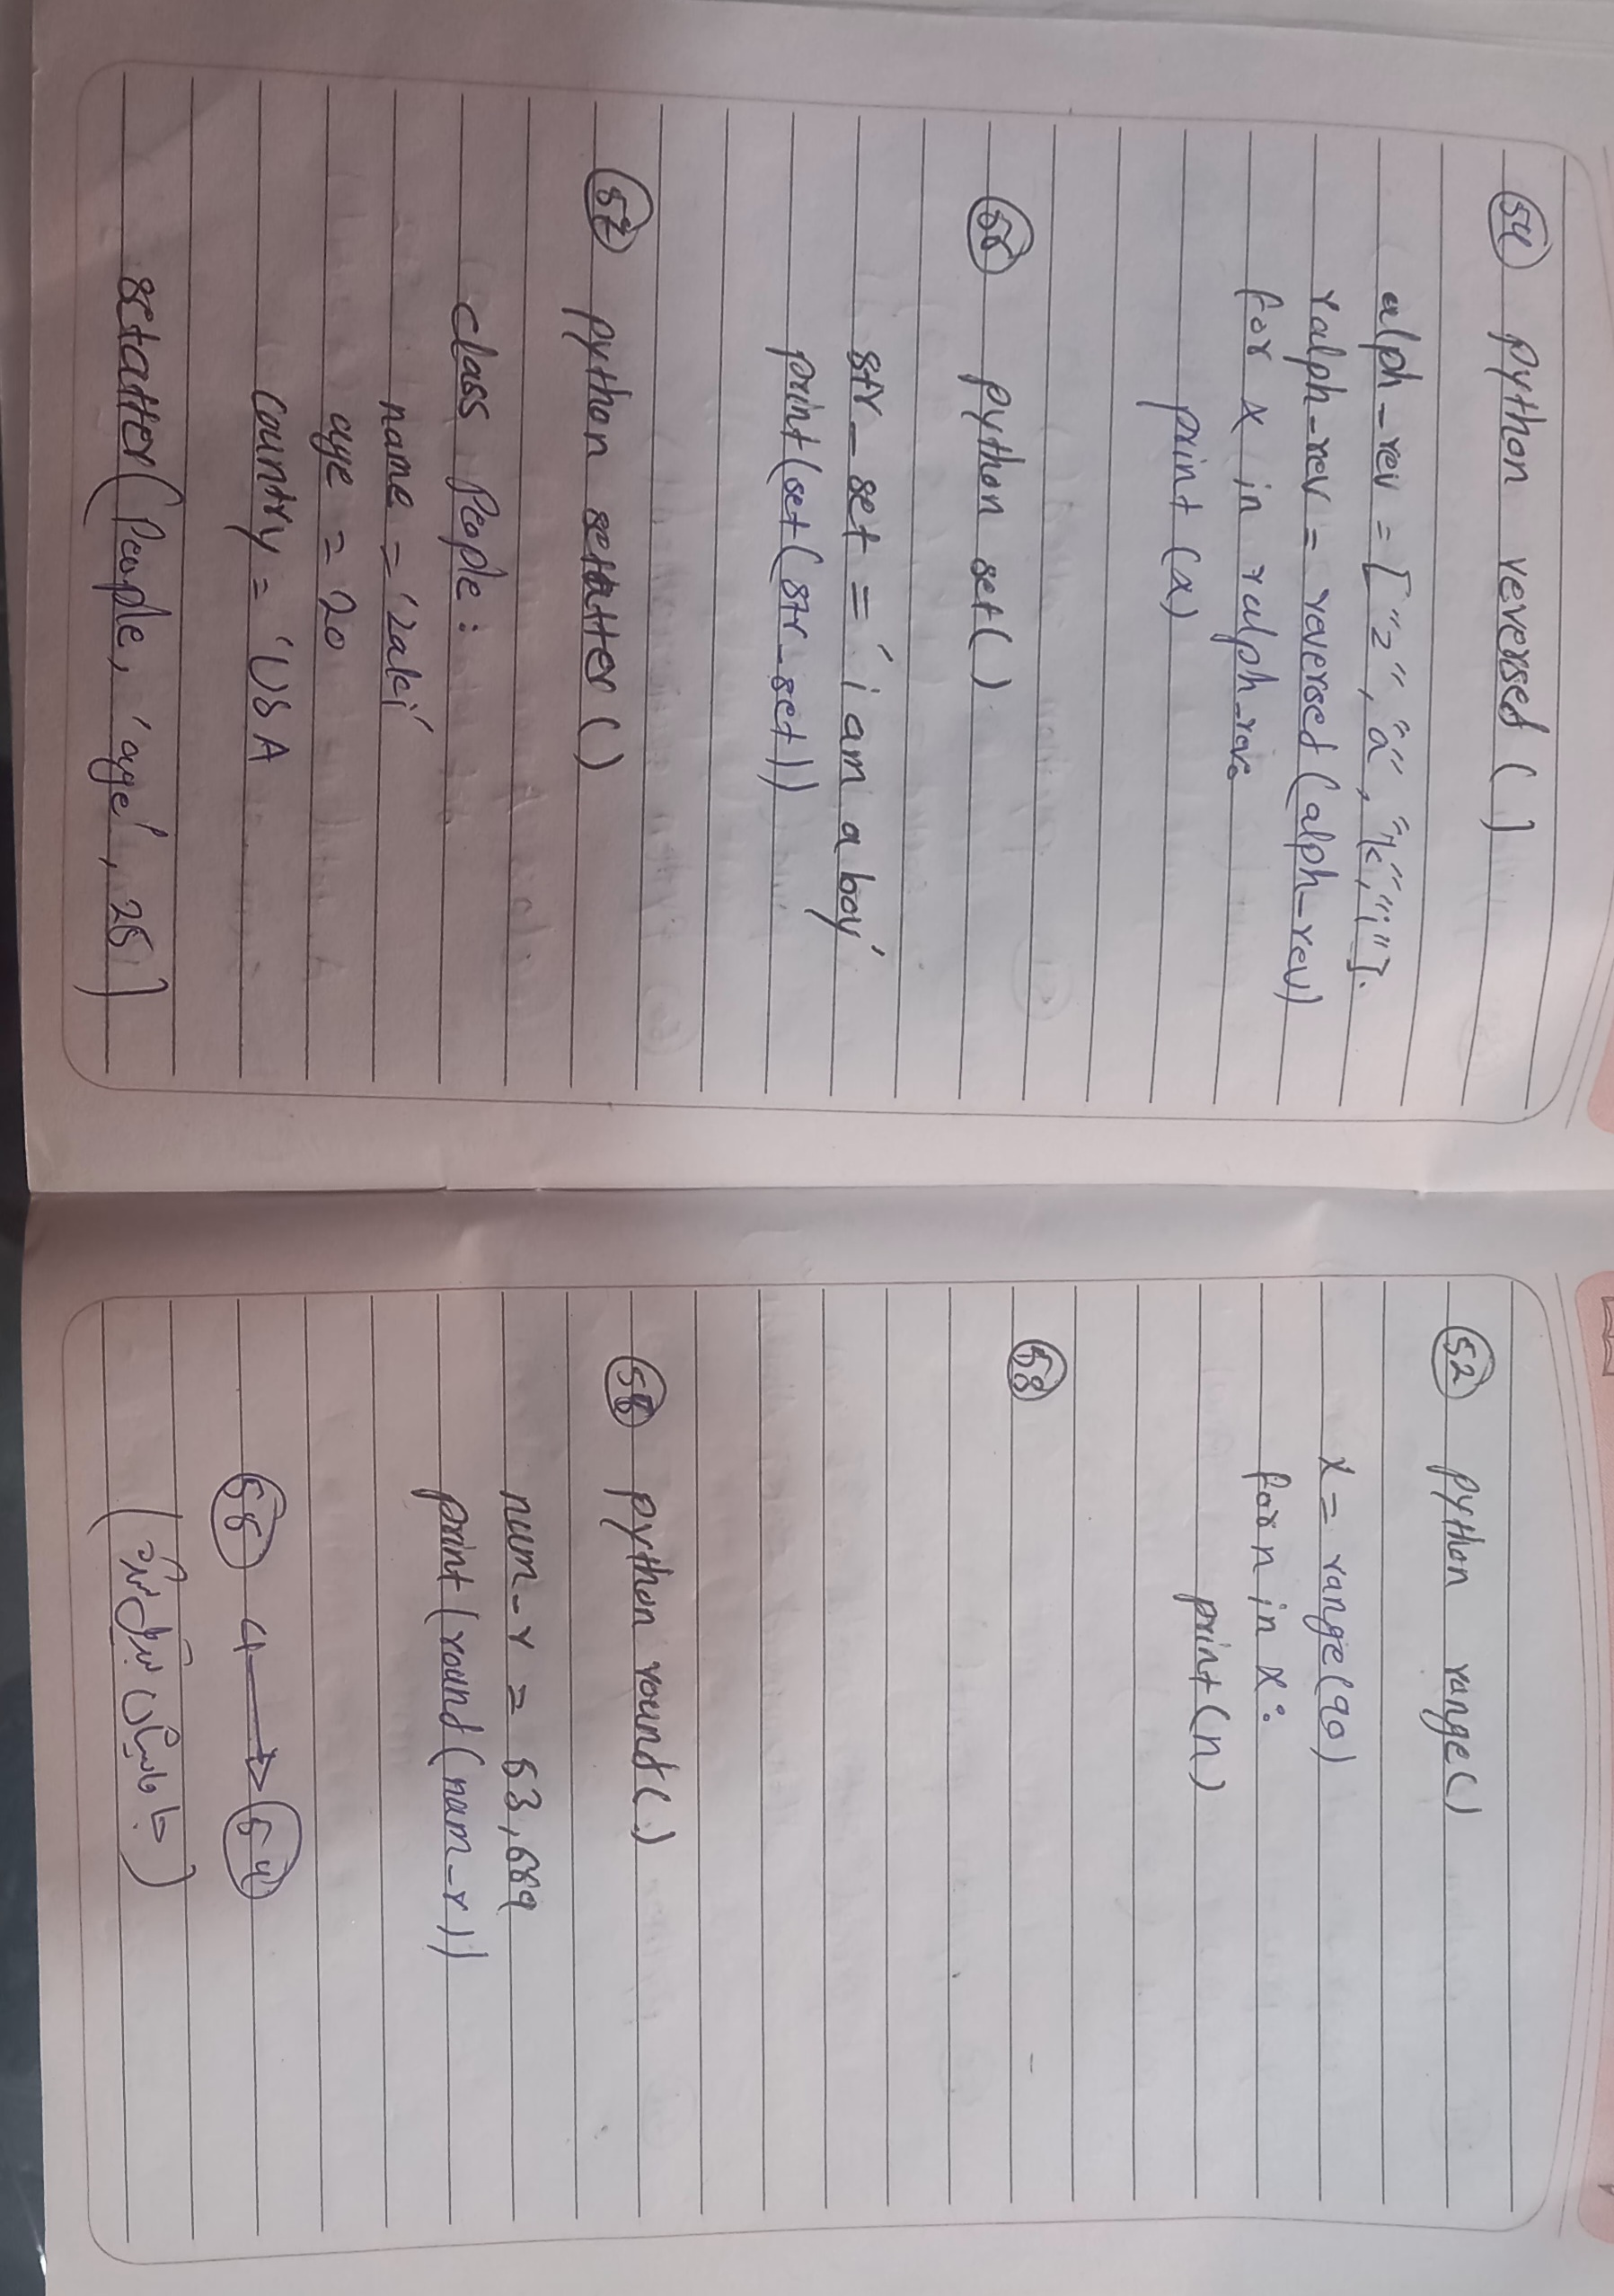 54 python reversed ( )
alph_rev = ["z", "a", "k", "i"].
ralph_rev = reversed (alph_rev)
for x in ralph_rev
print (x)
56 python set( )
str_set = 'i am a boy'
print (set( str_set))
57 python setatter ( )
class People :
name = 'zaki'
age = 20
country = 'USA
setatter( People, 'age', 25)
52 python range( )
x = range(90)
for n in x :
print (n)
53
python round (.)
num_r = 53,689
print (round (num_r))
55 54